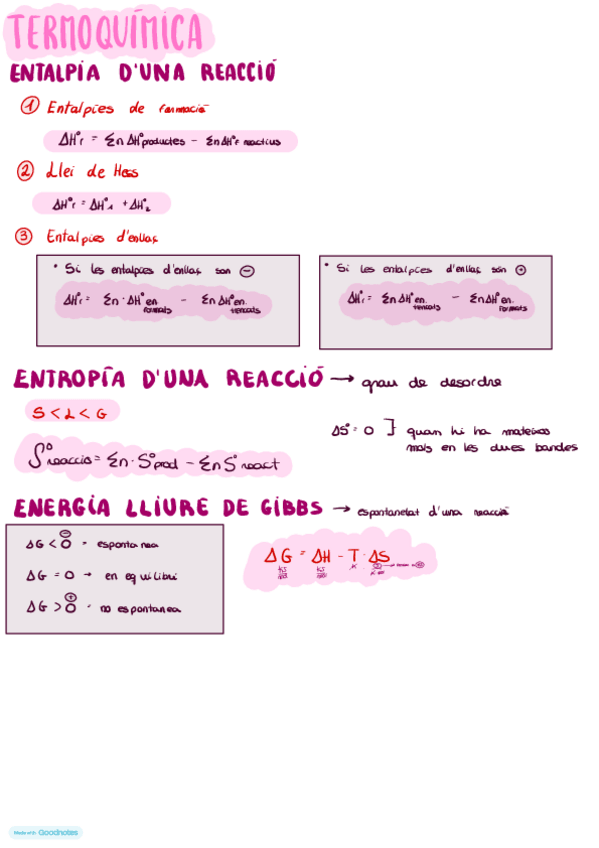 TERMOQUÍMICA
ENTALPIA D'UNA REACCIÓ
① Entalpies de formació
ΔH°r = Σn ΔH°productes - Σn ΔH°f reactius
② Llei de Hess
ΔH°r = ΔH°1 + ΔH°2
③ Entalpies d'enllaç
* Si les entalpies d'enllaç són ⊖
ΔH°r = Σn · ΔH°en. formats - Σn ΔH°en. trencats
* Si les entalpies d'enllaç són ⊕
ΔH°r = Σn ΔH°en. trencats - Σn ΔH°en. formats
ENTROPÍA D'UNA REACCIÓ → grau de desordre
S < L < G
ΔS° = 0 ] quan hi ha mateixos
mols en les dues bandes
S°reacció = Σn · S°prod - Σn S°react
ENERGÍA LLIURE DE GIBBS → espontaneïtat d'una reacció
ΔG < 0 ⊖ - espontanea
ΔG = 0 → en equilibri
ΔG > 0 ⊕ - no espontanea
ΔG = ΔH - T · ΔS
K
Made with Goodnotes